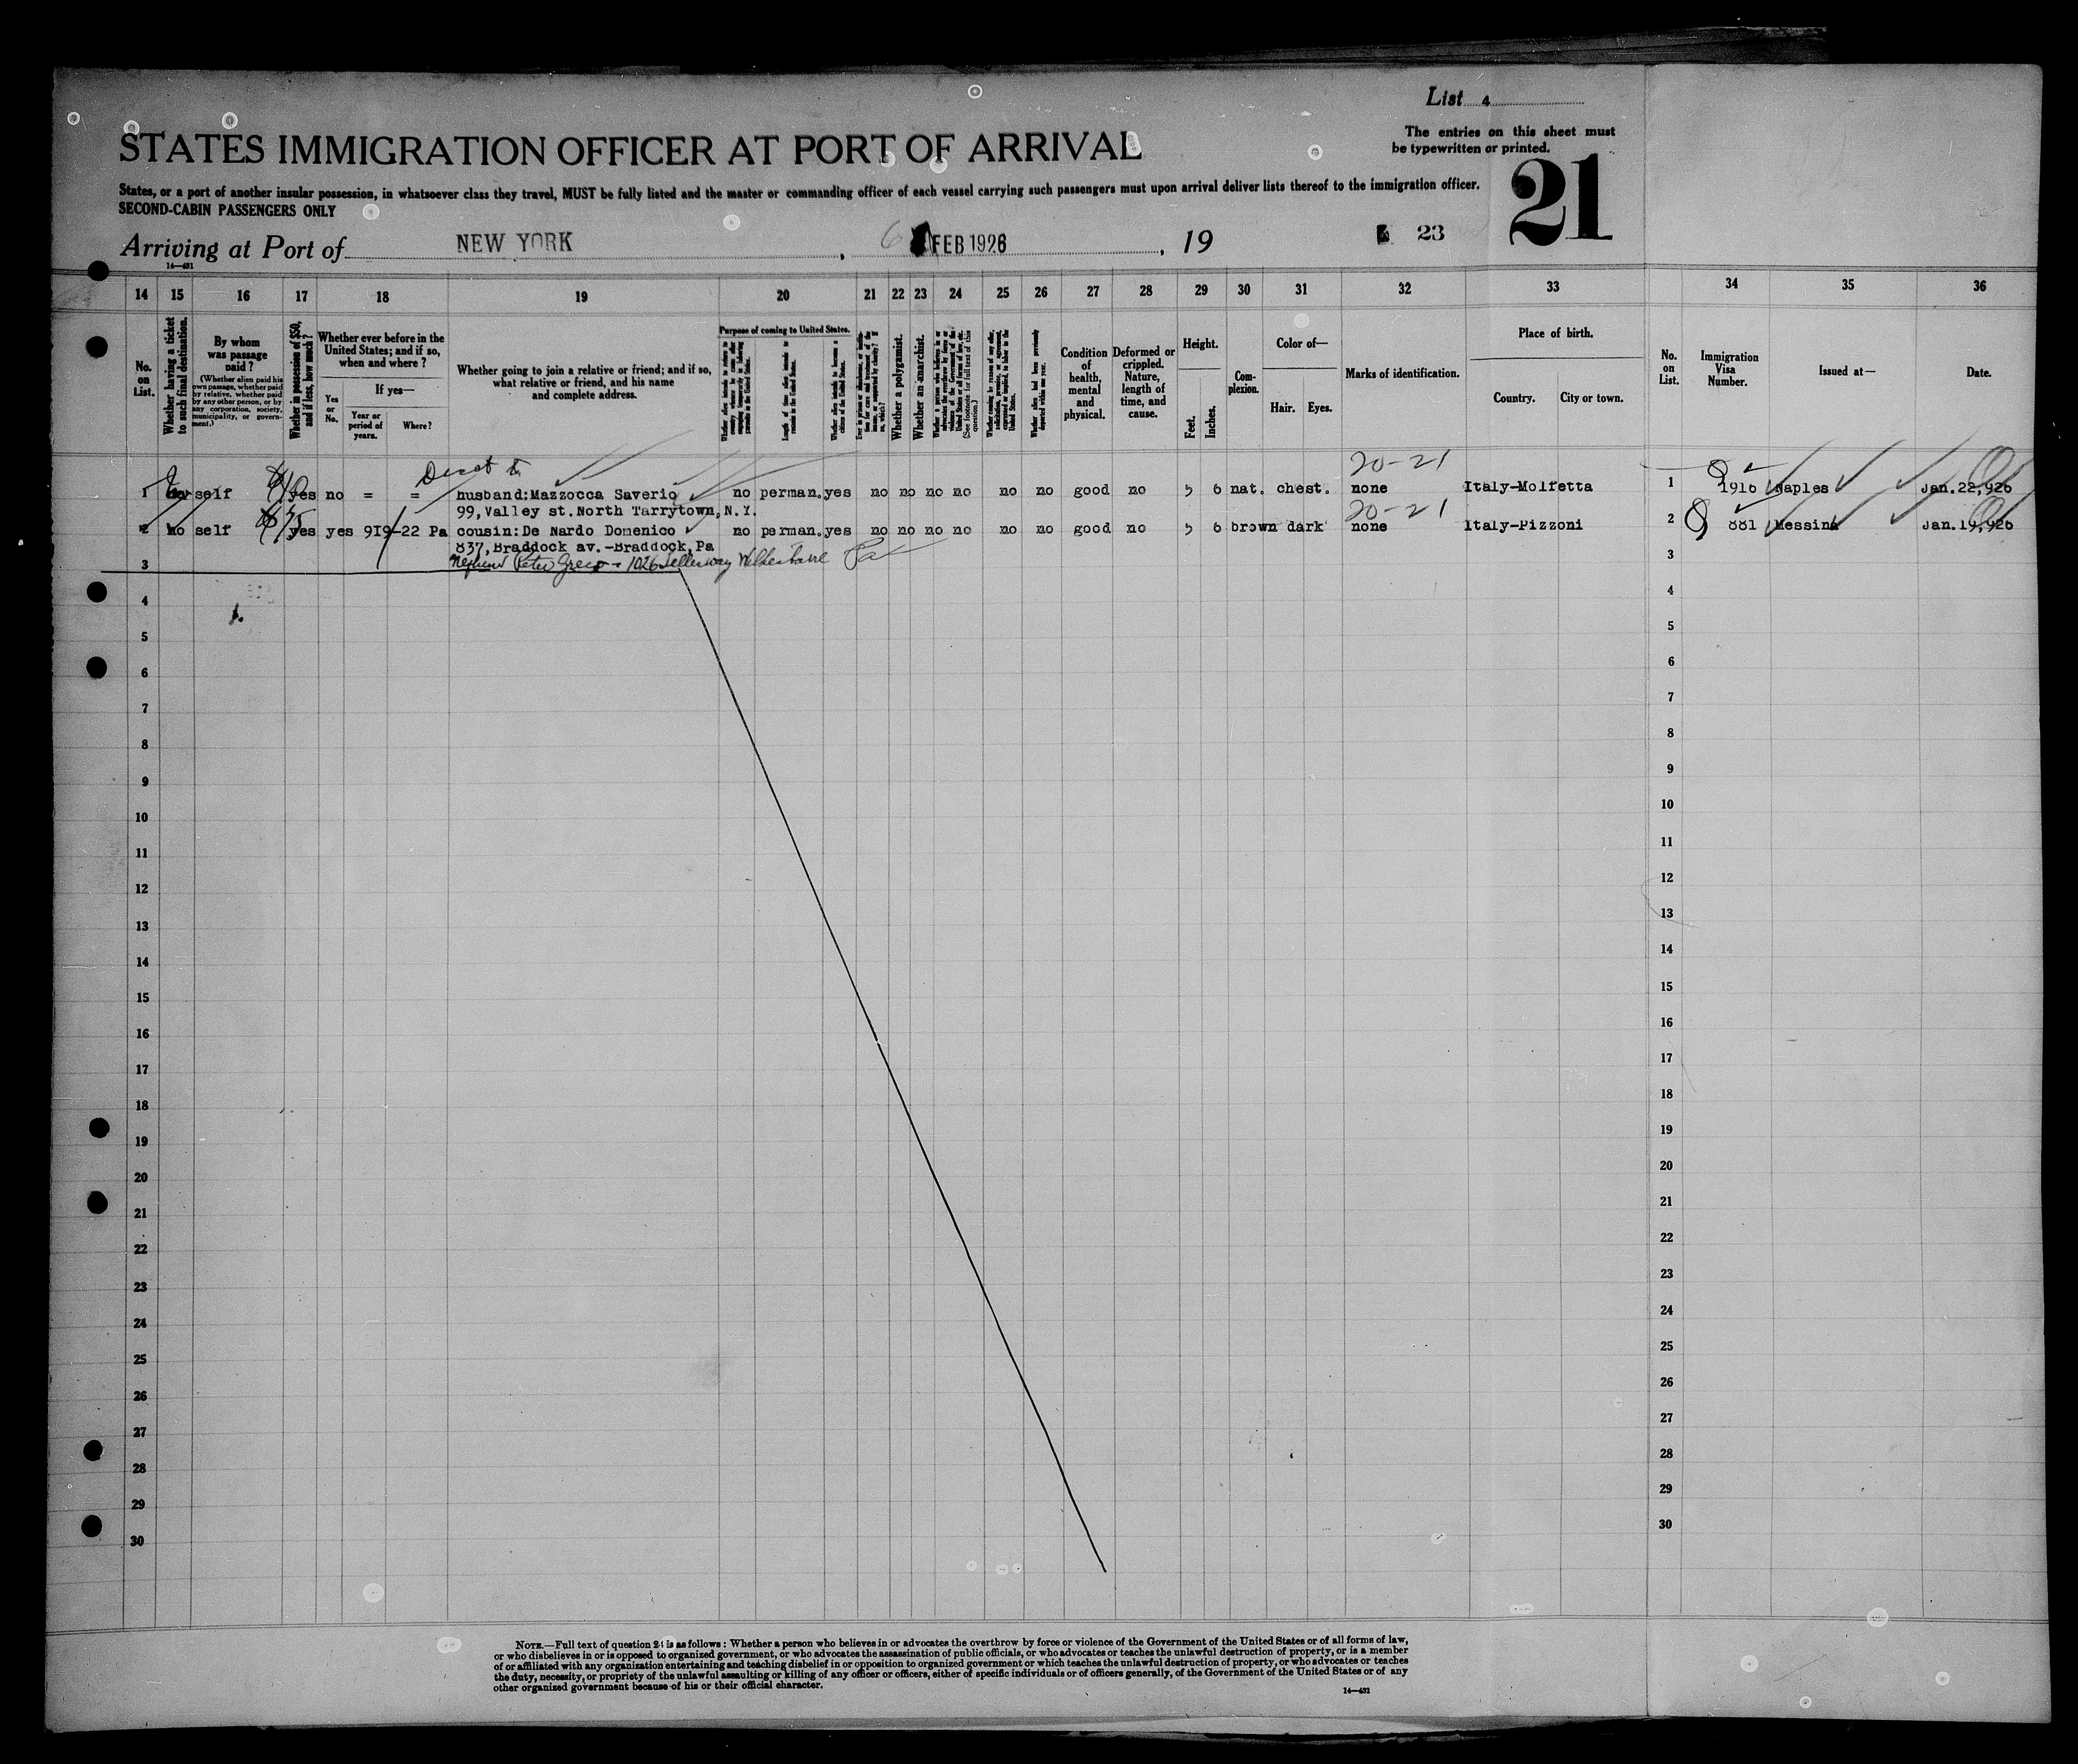 List 4
The entries on this sheet must
be typewritten or printed.
STATES IMMIGRATION OFFICER AT PORT OF ARRIVAL
21
States, or a port of another insular possession, in whatsoever class they travel, MUST be fully listed and the master or commanding officer of each vessel carrying such passengers must upon arrival deliver lists thereof to the immigration officer.
SECOND-CABIN PASSENGERS ONLY
Arriving at Port of NEW YORK, 6 FEB 1926, 19 23
14—481
14 15 16 17 18 19 20 21 22 23 24 25 26 27 28 29 30 31 32 33 34 35 36
No. on List.
Whether having a ticket to such final destination.
By whom was passage paid?
(Whether alien paid his own passage, whether paid by relative, whether paid by any other person, or by any corporation, society, municipality, or government.)
Whether in possession of $50, and if less, how much?
Whether ever before in the United States; and if so, when and where?
If yes—
Yes or No.
Year or period of years.
Where?
Whether going to join a relative or friend; and if so, what relative or friend, and his name and complete address.
Purpose of coming to United States.
Length of time alien intends to remain in the United States.
Whether alien intends to become a citizen of the United States.
Whether a polygamist.
Whether an anarchist.
(See footnote for full text of this question.)
Condition of health, mental and physical.
Deformed or crippled. Nature, length of time, and cause.
Height.
Feet.
Inches.
Complexion.
Color of—
Hair. Eyes.
Marks of identification.
Place of birth.
Country. City or town.
No. on List.
Immigration Visa Number.
Issued at—
Date.
20-21
1 self yes no = = husband:Mazzocca Saverio no perman. yes no no no no no no good no 5 6 nat. chest. none Italy-Molfetta 1 1916 Naples Jan.22,926
99,Valley st.North Tarrytown,N.Y.
20-21
2 no self yes yes 919-22 Pa cousin:De Nardo Domenico no perman. yes no no no no no no good no 5 6 brown dark none Italy-Pizzoni 2 881 Messina Jan.19,926
837,Braddock av.-Braddock,Pa
3 Nephew Peter Greco - 1026 Wilkesbarre Pa 3
4 4
5 5
6 6
7 7
8 8
9 9
10 10
11 11
12 12
13 13
14 14
15 15
16 16
17 17
18 18
19 19
20 20
21 21
22 22
23 23
24 24
25 25
26 26
27 27
28 28
29 29
30 30
NOTE.—Full text of question 24 is as follows: Whether a person who believes in or advocates the overthrow by force or violence of the Government of the United States or of all forms of law,
or who disbelieves in or is opposed to organized government, or who advocates the assassination of public officials, or who advocates or teaches the unlawful destruction of property, or is a member
of or affiliated with any organization entertaining and teaching disbelief in or opposition to organized government or which teaches the unlawful destruction of property, or who advocates or teaches
the duty, necessity, or propriety of the unlawful assaulting or killing of any officer or officers, either of specific individuals or of officers generally, of the Government of the United States or of any
other organized government because of his or their official character.
14—481